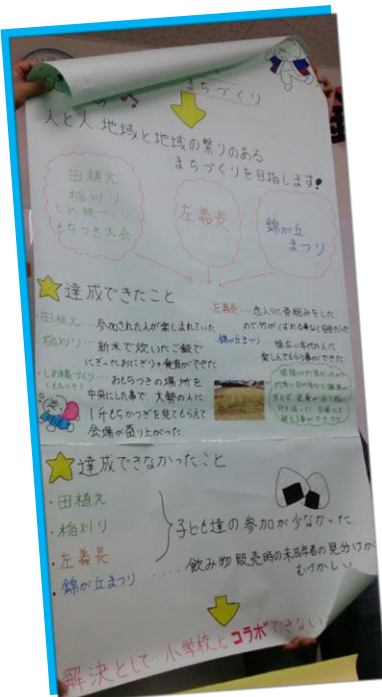 まちづくり
人と人 地域と地域の繋りのある
まちづくりを目指します!
田植え
稲刈り
しめ縄づくり
もちつき大会
左義長
錦が丘
まつり
達成できたこと
・田植え…参加された人が楽しまれていた
・稲刈り…新米で炊いたご飯で
にぎったおにぎり
・しめ縄づくり…おもちつきの場所を
(もちつき)
中央にした事で、大勢の人に
もちつきを見てもらえて
会場が盛り上がった。
・左義長…念入りに骨組みをした
錦が丘まつり…幅広い年代の人に
楽しんでもらう事ができた
達成できなかったこと
・田植え
・稲刈り
・左義長
子ども達の参加が少なかった
・錦が丘まつり
‥‥飲み物販売時の未成年者の見分けが
むずかしい
解決として…小学校とコラボできない